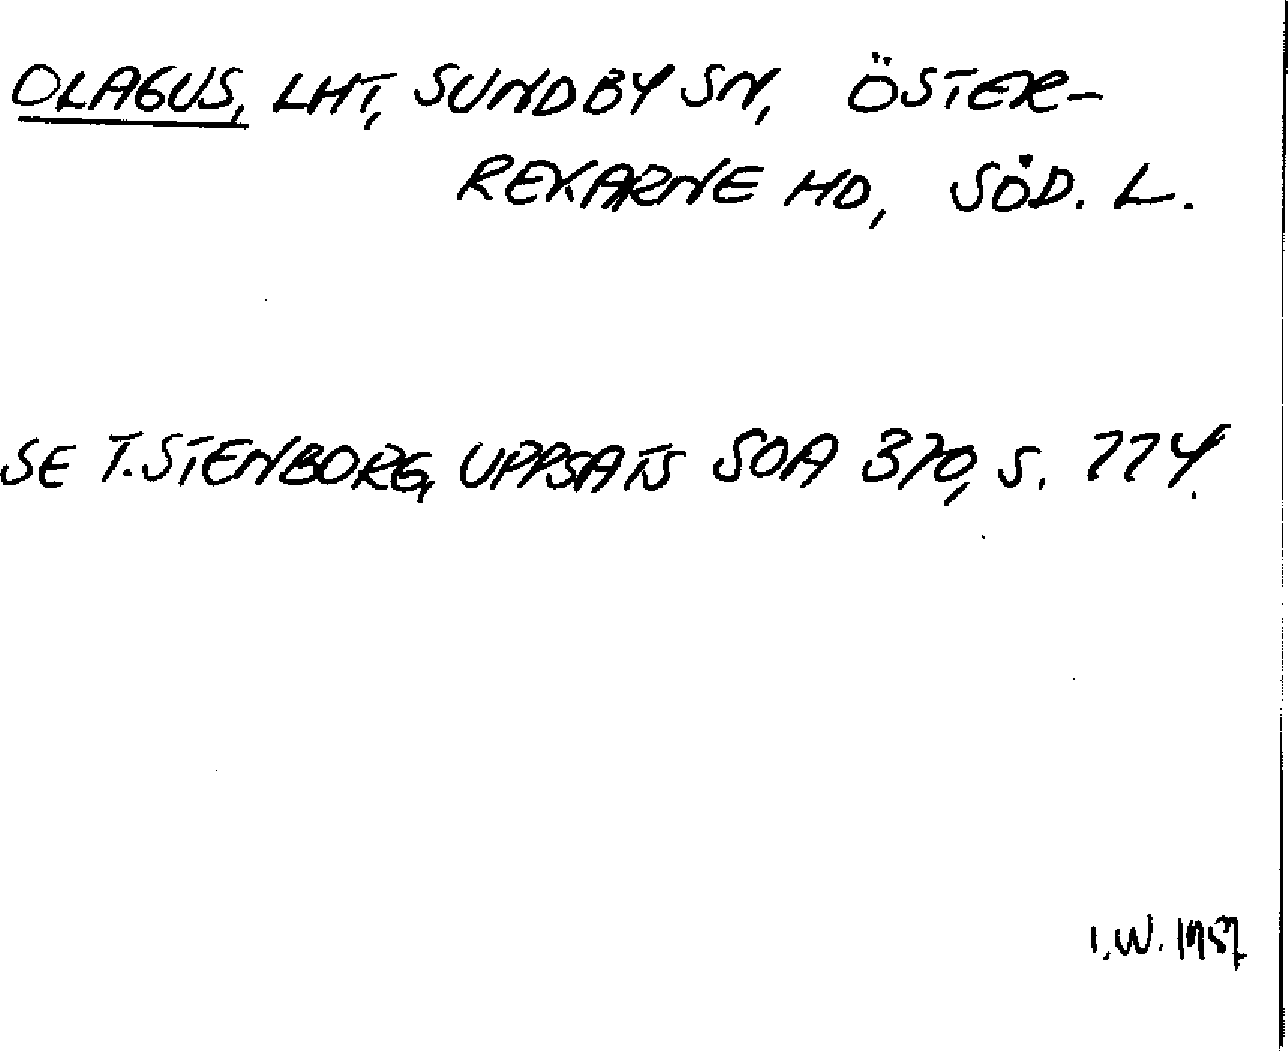 OLAGUS, LHT, SUNDBY SN, ÖSTER-
REKARNE HD, SÖD. L.
SE T. STENBORG, UPPSATS SOA 370, S. 774.
I.W. 1987